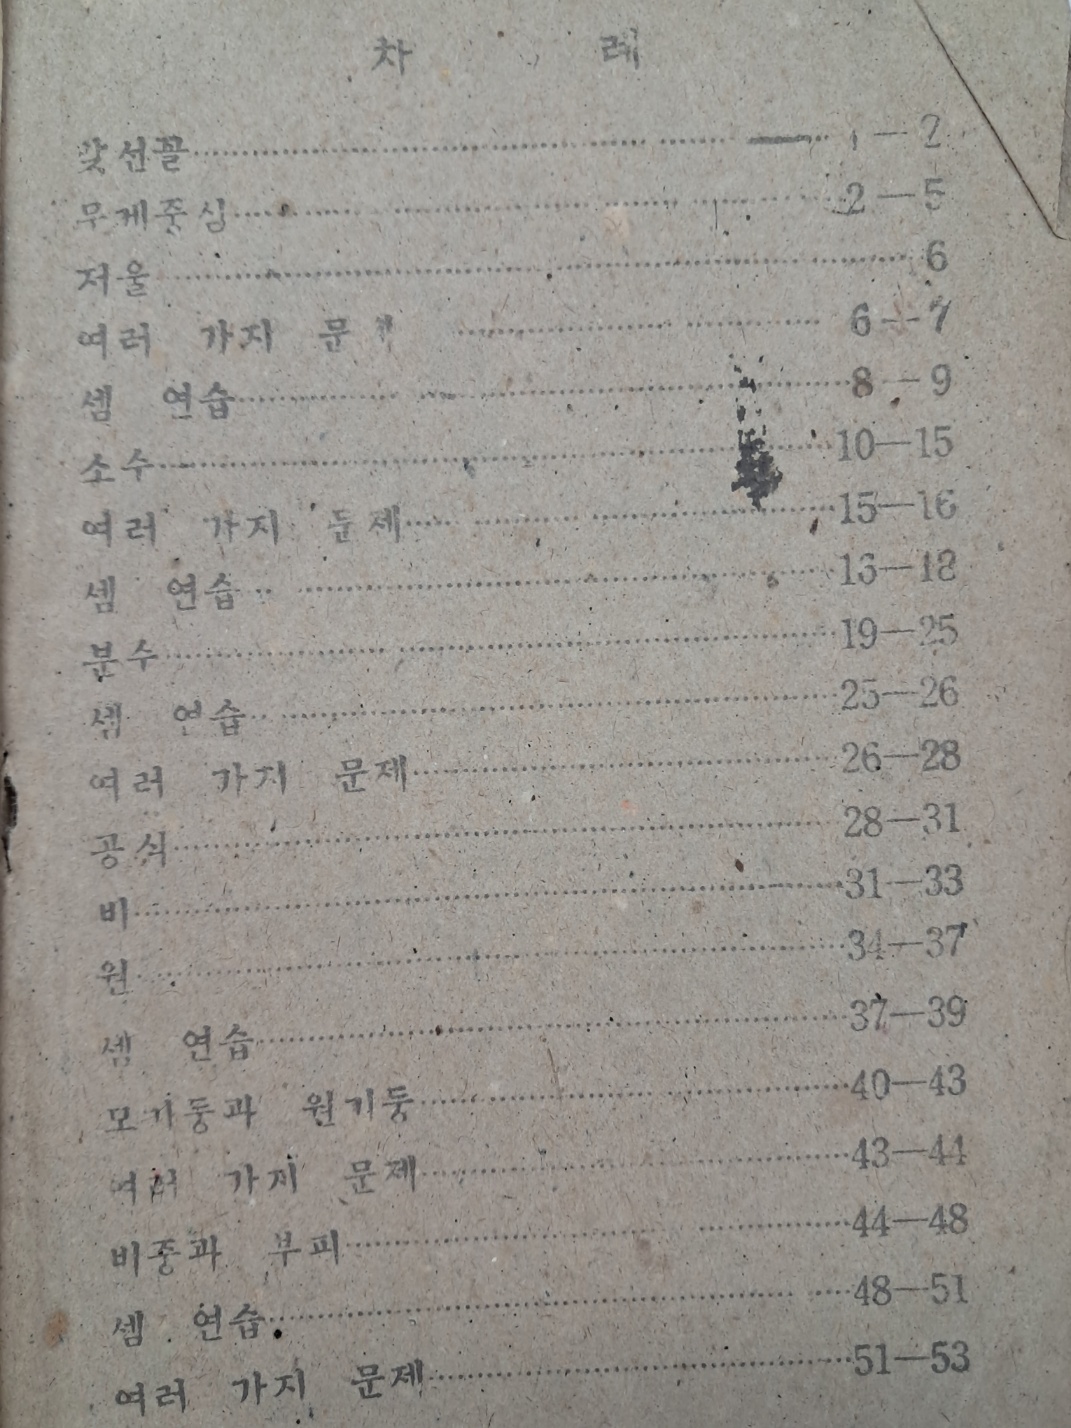 차 례
맞선꼴 1—2
무게중심 2—5
저울 6
여러 가지 문제 6—7
셈 연습 8—9
소수 10—15
여러 가지 문제 15—16
셈 연습 16—18
분수 19—25
셈 연습 25—26
여러 가지 문제 26—28
공식 28—31
비 31—33
원 34—37
셈 연습 37—39
모기둥과 원기둥 40—43
여러 가지 문제 43—44
비중과 부피 44—48
셈 연습 48—51
여러 가지 문제 51—53